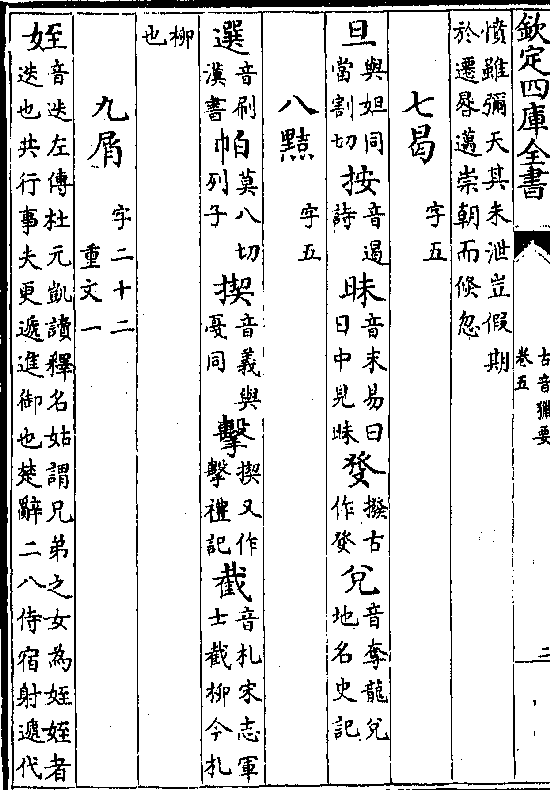 欽定四庫全書
古音獵要
卷五
二
憤雖彌天其未泄豈假期
於遷晷邁崇朝而倏忽
七曷 字五
旦 與妲同當割切 按 音遏詩 昧 音末易曰日中見昧 發 撥古作發 兌 音奪龍兌地名史記
八黠 字五
選 音刷漢書 帕 莫八切列子 揳 音義與戞同 擊 揳又作擊禮記 截 音札宋志軍士截柳今札
柳也
九屑 字二十二 重文一
姪 音迭左傳杜元凱讀釋名姑謂兄弟之女為姪姪者迭也共行事夫更遞進御也楚辭二八侍宿射遞代